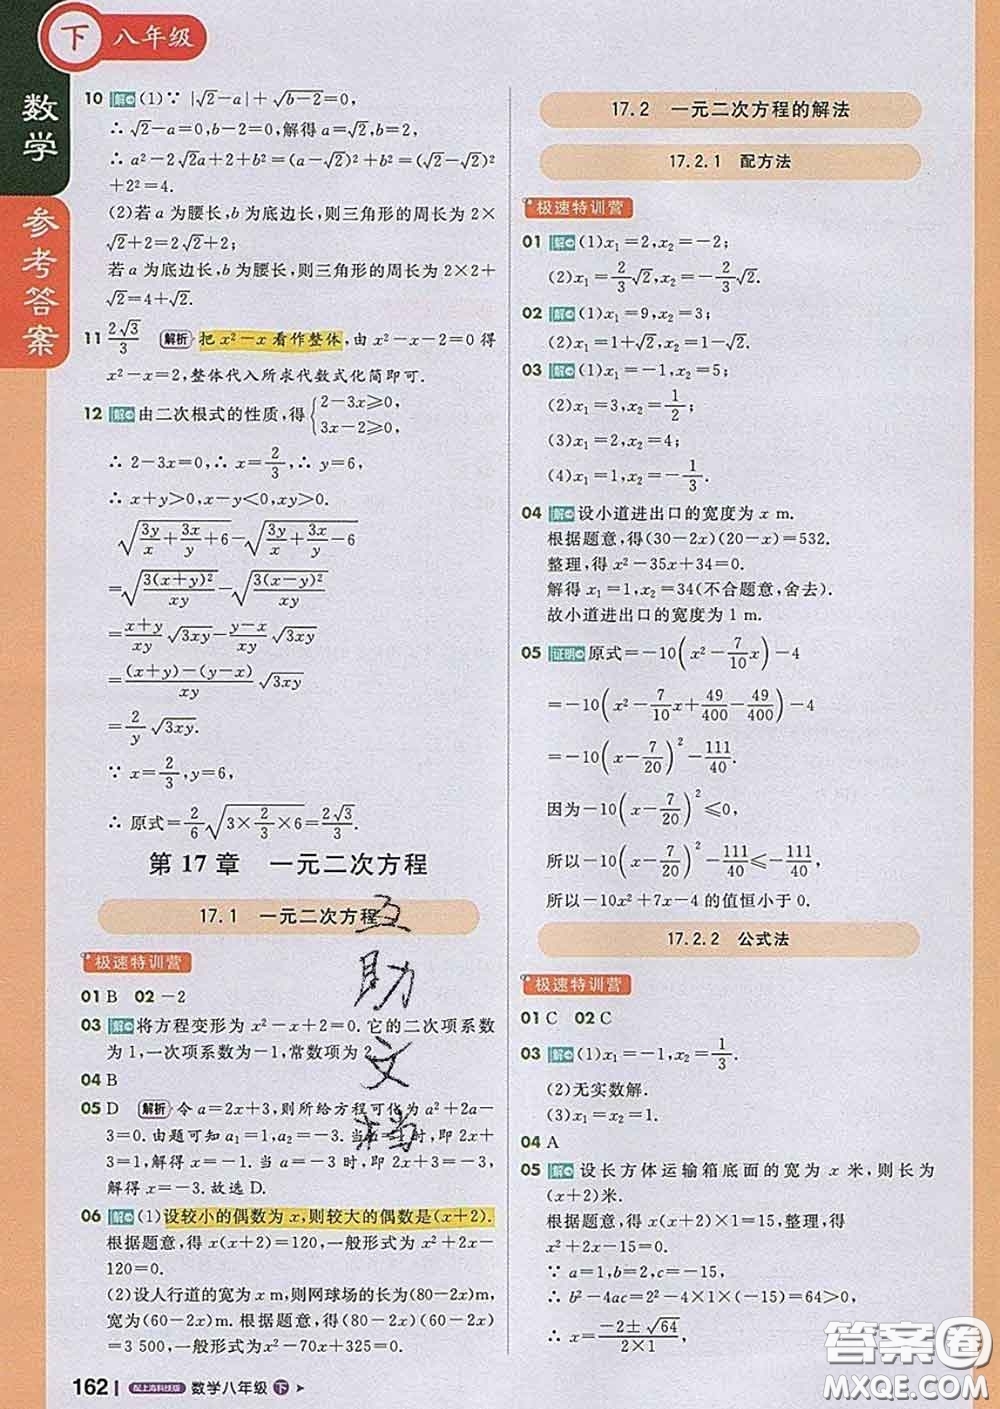 下 八年级
数学
参考答案
10 解 (1)∵ |√2−a|+√(b−2)=0,
∴ √2−a=0,b−2=0,解得 a=√2,b=2,
∴ a²−2√2a+2+b²=(a−√2)²+b²=(√2−√2)²
+2²=4.
(2)若 a 为腰长,b 为底边长,则三角形的周长为 2×
√2+2=2√2+2;
若 a 为底边长,b 为腰长,则三角形的周长为 2×2+
√2=4+√2.
11 2√3/3 解析 把 x²−x 看作整体,由 x²−x−2=0 得
x²−x=2,整体代入所求代数式化简即可.
12 解 由二次根式的性质,得 {2−3x⩾0,
3x−2⩾0,
∴ 2−3x=0,∴ x=2/3,∴ y=6,
∴ x+y>0,x−y<0,xy>0.
√(3y/x+3x/y+6)−√(3y/x+3x/y−6)
=√(3(x+y)²/xy)−√(3(x−y)²/xy)
=(x+y)/xy √3xy−(y−x)/xy √3xy
=((x+y)−(y−x))/xy √3xy
=2/y √3xy.
∵ x=2/3,y=6,
∴ 原式=2/6 √(3×2/3×6)=2√3/3.
第 17 章 一元二次方程
17.1 一元二次方程
极速特训营
01 B 02 −2
03 解 将方程变形为 x²−x+2=0.它的二次项系数
为 1,一次项系数为−1,常数项为 2
04 B
05 D 解析 令 a=2x+3,则所给方程可化为 a²+2a−
3=0.由题可知 a₁=1,a₂=−3.当a=1时,即 2x+
3=1,解得 x=−1.当 a=−3 时,即 2x+3=−3,
解得 x=−3.故选 D.
06 解 (1)设较小的偶数为 x,则较大的偶数是(x+2).
根据题意,得 x(x+2)=120,一般形式为 x²+2x−
120=0.
(2)设人行道的宽为 x m,则网球场的长为(80−2x)m,
宽为(60−2x)m.根据题意,得(80−2x)(60−2x)
=3 500,一般形式为 x²−
162 配上海科技版 数学八年级 下
17.2 一元二次方程的解法
17.2.1 配方法
极速特训营
01 解 (1)x₁=2,x₂=−2;
(2)x₁=2/3 √2,x₂=−2/3 √2.
02 解 (1)x₁=9,x₂=3;
(2)x₁=1+√2,x₂=1−√2.
03 解 (1)x₁=−1,x₂=5;
(2)x₁=3,x₂=1/2;
(3)x₁=2,x₂=4;
(4)x₁=1,x₂=−1/3.
04 解 设小道进出口的宽度为 x m.
根据题意,得(30−2x)(20−x)=532.
整理,得 x²−35x+34=0.
解得 x₁=1,x₂=34(不合题意,舍去).
故小道进出口的宽度为 1 m.
05 证明 原式=−10(x²−7/10 x)−4
=−10(x²−7/10 x+49/400−49/400)−4
=−10(x−7/20)²−111/40.
因为−10(x−7/20)²⩽0,
所以−10(x−7/20)²−111/40⩽−111/40,
所以−10x²+7x−4 的值恒小于 0.
17.2.2 公式法
极速特训营
01 C 02 C
03 解 (1)x₁=−1,x₂=1/3.
(2)无实数解.
(3)x₁=x₂=1.
04 A
05 解 设长方体运输箱底面的宽为 x 米,则长为
(x+2)米.
根据题意,得 x(x+2)×1=15,整理,得
x²+2x−15=0.
∵ a=1,b=2,c=−15,
∴ b²−4ac=2²−4×1×(−15)=64>0,
∴ x=(−2±√64)/(2×1),
互助文档
答案圈
MXQE.COM